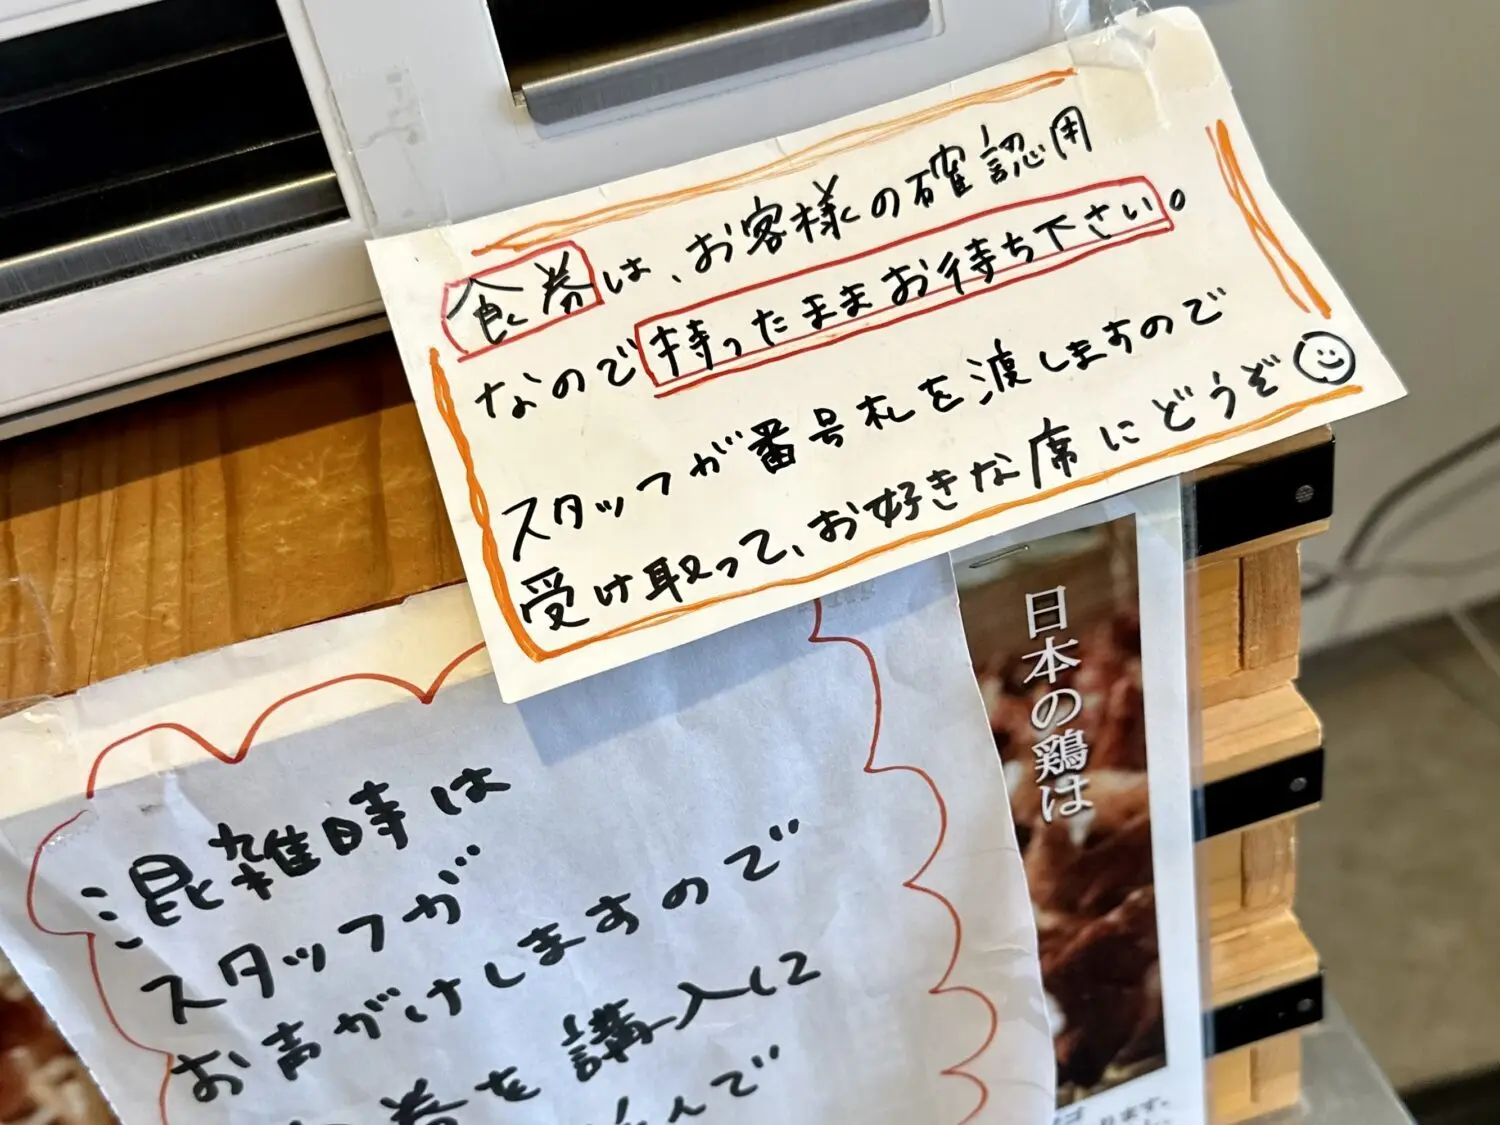 食券は、お客様の確認用
なので持ったままお待ち下さい。
スタッフが番号札を渡しますので
受け取って、お好きな席にどうぞ
混雑時は
スタッフが
お声がけしますので
券を講入に
んで
日本の鶏は
ます。